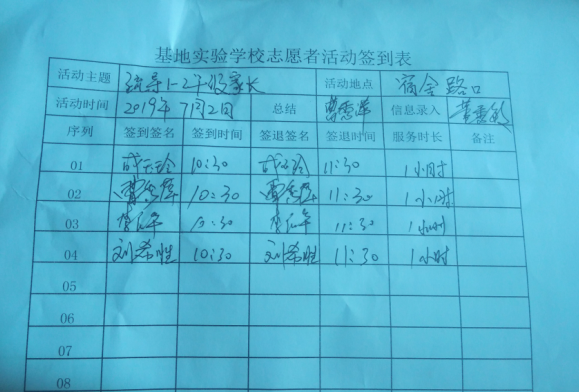 基地实验学校志愿者活动签到表
活动主题 1-2年级家长 活动地点 宿舍路口
活动时间 2019年7月2日 总结 信息录入
序列 签到签名 签到时间 签退签名 签退时间 服务时长 备注
01 10:30 11:30 1小时
02 10:30 11:30 1小时
03 10:30 11:30 1小时
04 刘希胜 10:30 刘希胜 11:30 1小时
05
06
07
08